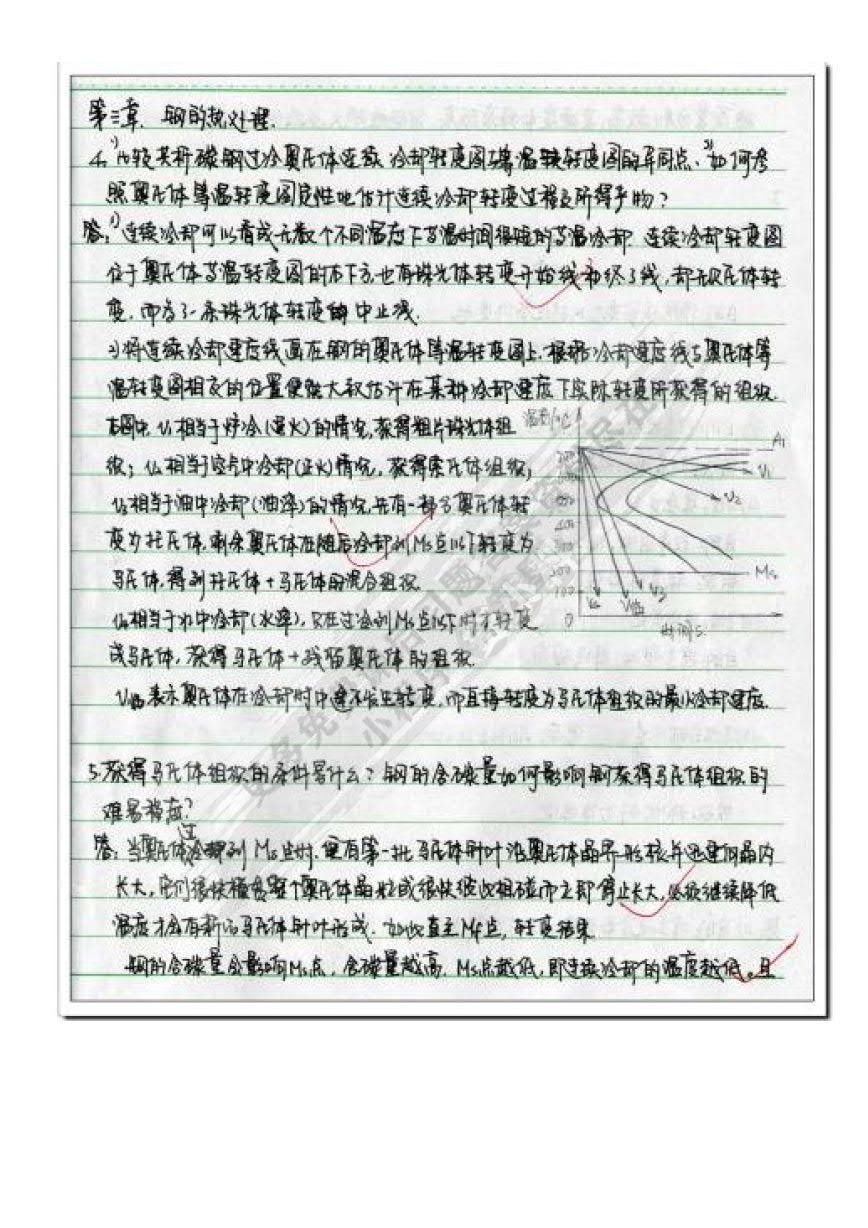 第三章. 钢的热处理.
4. 1)比较共析碳钢过冷奥氏体连续冷却转变图与等温转变图的异同点. 2)如何参
照奥氏体等温转变图定性地估计连续冷却转变过程及所得产物?
答: 1)连续冷却可以看成无数个不同温度下等温时间很短的等温冷却. 连续冷却转变图
位于奥氏体等温转变图的右下方.也有珠光体转变开始线和终了线,却无贝氏体转
变.而多了一条珠光体转变的中止线.
2)将连续冷却速度线画在钢的奥氏体等温转变图上.根据冷却速度线与奥氏体等
温转变图相交的位置便能大致估计在某种冷却速度下实际转变所获得的组织.
右图中 V₁相当于炉冷(退火)的情况,获得粗片珠光体组
织; V₂相当于空气中冷却(正火)情况, 获得索氏体组织;
V₃相当于油中冷却(油淬)的情况,先有一部分奥氏体转
变为托氏体,剩余奥氏体在随后冷却到Ms点以下转变为
马氏体,得到托氏体+马氏体的混合组织.
V₄相当于水中冷却(水淬),只在过冷到Ms点以下时才转变
成马氏体,获得马氏体+残留奥氏体的组织.
V临表示奥氏体在冷却时中途不发生转变,而直接转变为马氏体组织的最小冷却速度.
温度/℃
A₁
V₁
V₂
Ms
V₃
V临
V₄
700
400
300
200
100
0
时间/s
5.获得马氏体组织的条件是什么?钢的含碳量如何影响钢获得马氏体组织的
难易程度?
答: 当奥氏体过冷到Ms点时,便有第一批马氏体针叶沿奥氏体晶界形核并迅速向晶内
长大,它们很快横贯整个奥氏体晶粒或很快彼此相碰而立即停止长大,必须继续降低
温度才会有新的马氏体针叶形成.如此直至Mf点,转变结束
钢的含碳量会影响Ms点,含碳量越高,Ms点越低,即连续冷却的温度越低。且